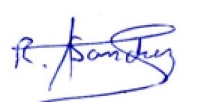 R. Sanchez